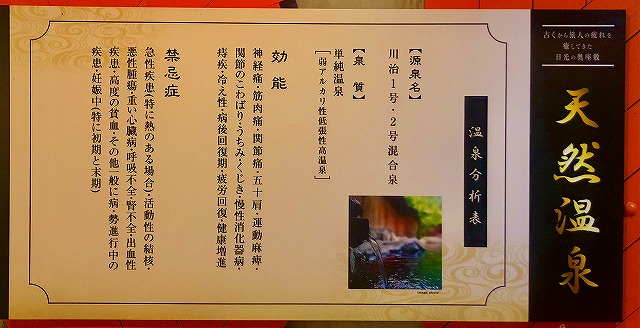 古くから旅人の疲れを
癒してきた
日光の奥座敷
天然温泉
温泉分析表
【源泉名】
川治1号・2号混合泉
【泉　質】
単純温泉
［弱アルカリ性低張性高温泉］
効　能
神経痛・筋肉痛・関節痛・五十肩・運動麻痺・
関節のこわばり・うちみ・くじき・慢性消化器病・
痔疾・冷え性・病後回復期・疲労回復・健康増進
禁忌症
急性疾患(特に熱のある場合)・活動性の結核・
悪性腫瘍・重い心臓病・呼吸不全・腎不全・出血性
疾患・高度の貧血・その他一般に病勢進行中の
疾患・妊娠中(特に初期と末期)